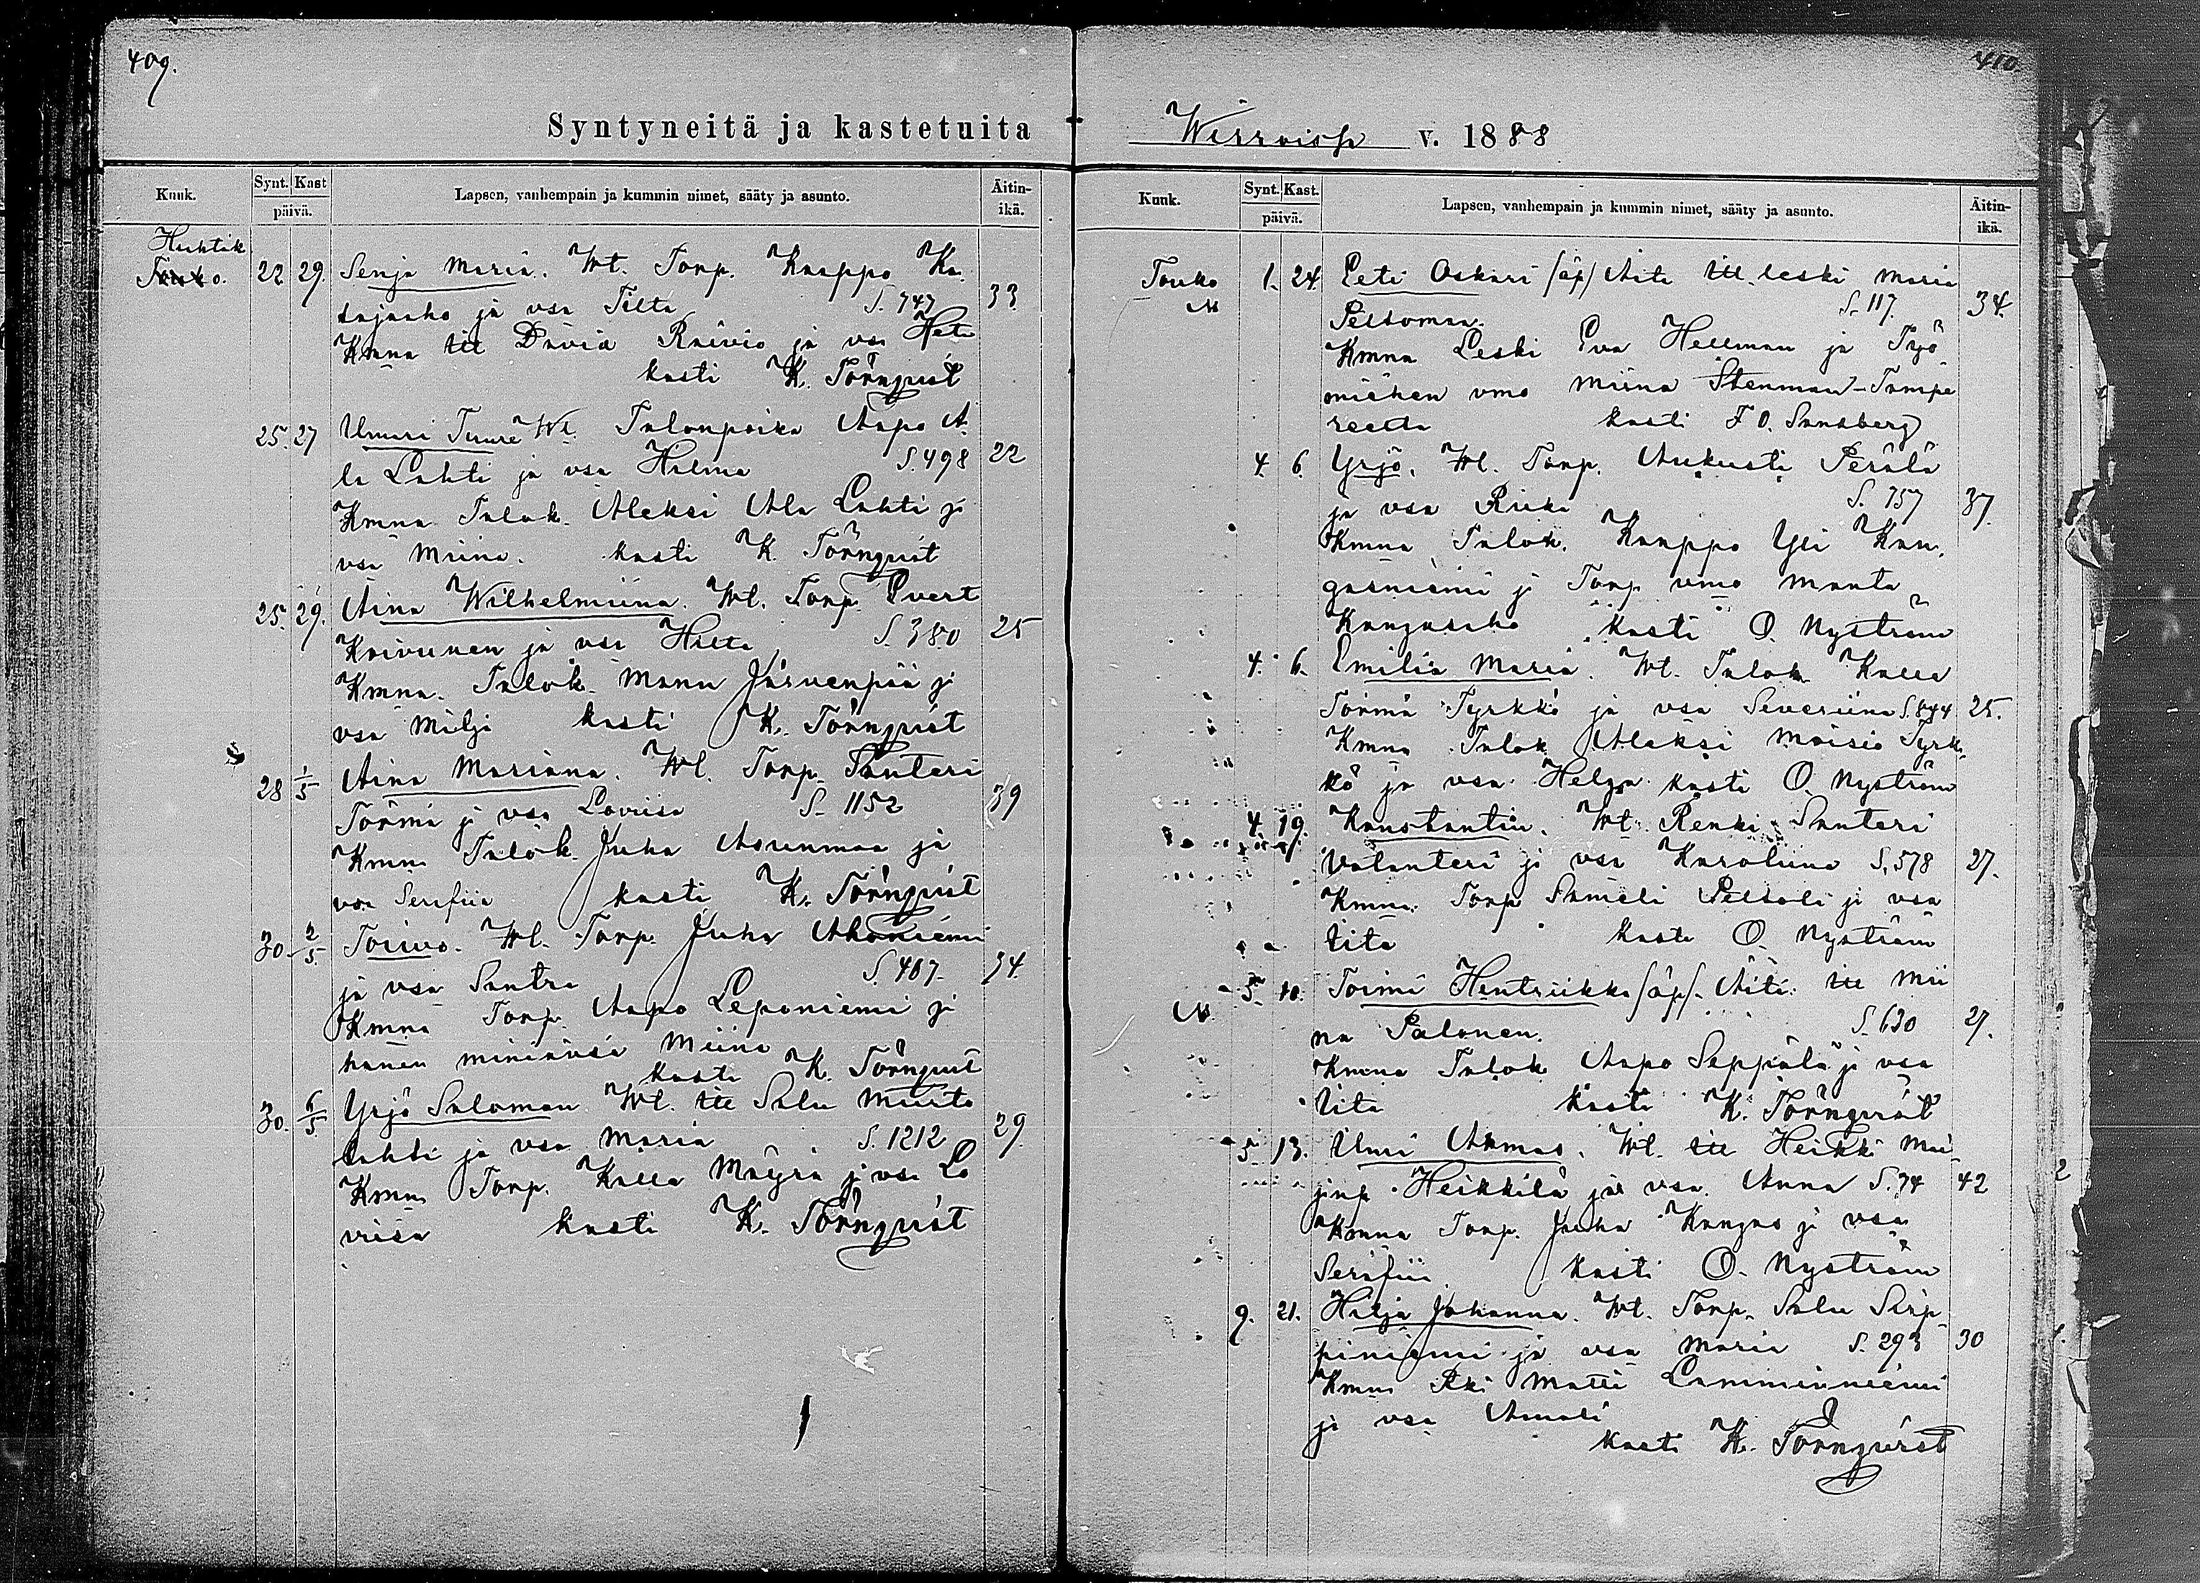 409.
Syntyneitä ja kastetuita
Kuuk.
Synt. Kast
päivä.
Lapsen, vanhempain ja kummin nimet, sääty ja asunto.
Äitin-
ikä.
Huhtik
Touko.
22 29. Senja Maria. Wt. Torp. Kaappo Ka-
tajaaho ja vsa Tilta S. 747 33
Kmna itll Davia Raivio ja vsa Heta
kasti K. Törnqvist
25. 27 Ilmari Tuure Wt. Talonpoika Aapo A-
la Lahti ja vsa Hilma S. 498 22
Kmna Talok. Aleksi Ala Lahti ja
vsa Miina. kasti K. Törnqvist
25. 29. Aina Wilhelmiina. Wl. Torp. Evert
Koivunen ja vsa Hilta S. 380 25
Kmna. Talok. Manu Järvenpää ja
vsa Milja kasti K. Törnqvist
28 1/5 Aina Mariana. Wl. Torp. Santeri
Törmä ja vsa Loviisa S. 1152 39
Kmna Talok. Juha Asunmaa ja
vsa Serafiia kasti K. Törnqvist
30. 2/5. Toiwo. Wl. Torp. Juha Ahoniemi
ja vsa Santra S. 467. 34.
Kmna Torp. Aapo Leponiemi ja
hänen miniänsä Miina
kasti K. Törnqvist
30. 6/5. Yrjö Salomon Wl. itll Salu Musta
lahti ja vsa Maria S. 1212 29.
Kmna Torp. Kalla Mäyrä ja vsa Lo
viisa kasti K. Törnqvist
410
Wirroissa v. 1888
Kuuk.
Synt. Kast.
päivä.
Lapsen, vanhempain ja kummin nimet, sääty ja asunto.
Äitin-
ikä.
Touko 1. 24 Eeti Oskari /äp/ Äiti itll. leski Maria
Peltomaa. S. 117. 34.
Kmna Leski Eva Hellman ja Työ
miehen vmo Miina Stenman Tampe
reelta kasti F O. Sandberg
4. 6. Yrjö. Wl. Torp. Aukusti Perälä
ja vsa Riika S. 757 37.
Kmna Talok. Kaappo Yli Kan-
gasniemi ja Torp vmo Manta
Kangasaho kasti O. Nyström
4. 6. Emilia Maria. Wt. Talok Kalle
Törmä Tyrkkö ja vsa Severiina S. 844 25.
Kmna Talok Aleksi Moisio Tyrk-
kö ja vsa Helga kasti O. Nyström
4. 19. Konstantin. Wt. Renki Santeri
Valanteri ja vsa Karoliina S. 578 27.
Kmna Torp Sameli Peltoli ja vsa
tita kasti O. Nyström
5. 10. Toimi Hentriikka /äp/. Äiti itll Mii
na Palonen. S. 630 27.
Kmna Talok Aapo Seppälä ja vsa
tita kasti K. Törnqvist
5. 13. Uuni Armas. Wl. itll Heikki Mai
janp. Heikkilä ja vsa Anna S. 74 42
Kmna Torp. Juha Kangas ja vsa
Serafiia kasti O. Nyström
9. 21. Hilja Johanna. Wt. Torp. Salu Sirp-
piniemi ja vsa Maria S. 293 30
Kmna Rki Matti Lamminniemi
ja vsa Amali
kasti K. Törnqvist